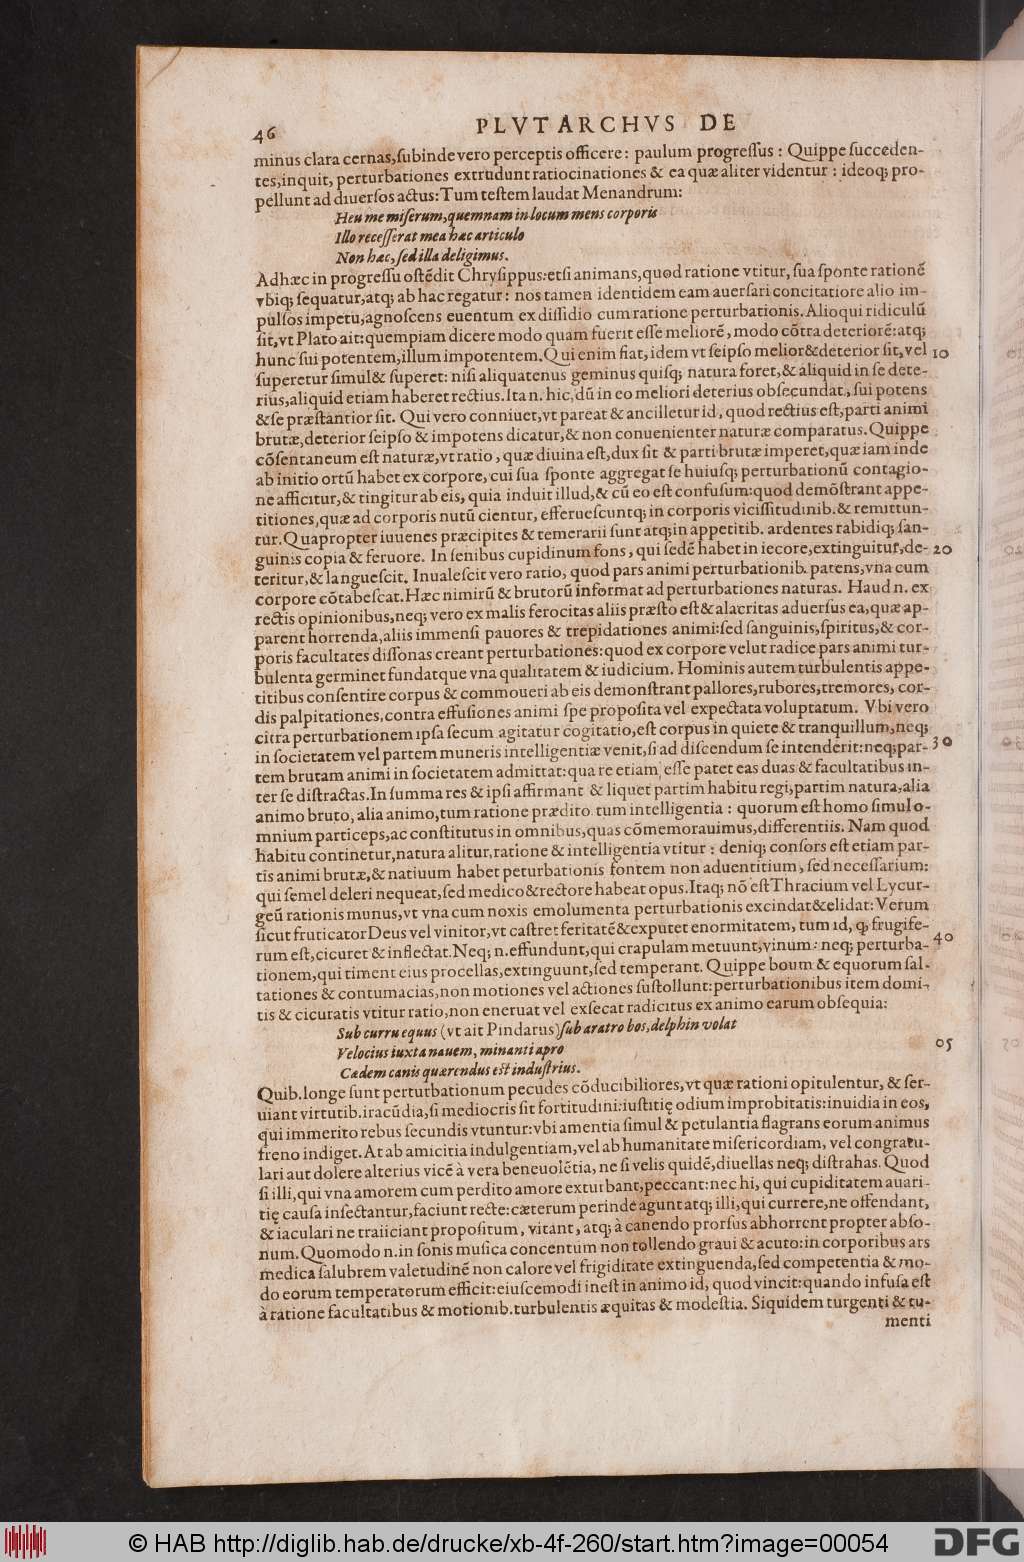 46 PLVTARCHVS DE
minus clara cernas,ſubinde vero perceptis officere: paulum progreſſus: Quippe ſucceden-
tes,inquit, perturbationes extrudunt ratiocinationes & ea quæ aliter videntur: ideoq; pro-
pellunt ad diuerſos actus: Tum teſtem laudat Menandrum:
Heu me miſerum,quemnam in locum mens corporis
Illo receſſerat mea hac articulo
Non hac, ſed illa deligimus.
Adhæc in progreſſu oſtẽdit Chryſippus:etſi animans,quod ratione vtitur, ſua ſponte rationẽ
vbiq; ſequatur,atq; ab hac regatur: nos tamen identidem eam auerſari concitatiore alio im-
pulſos impetu,agnoſcens euentum ex diſſidio cum ratione perturbationis. Alioqui ridiculũ
ſit,vt Plato ait:quempiam dicere modo quam fuerit eſſe meliorẽ, modo cõtra deteriorẽ:atq;
hunc ſui potentem,illum impotentem. Qui enim fiat, idem vt ſeipſo melior&deterior ſit,vel 10
ſuperetur ſimul& ſuperet: niſi aliquatenus geminus quiſq; natura foret,& aliquid in ſe dete-
rius,aliquid etiam haberet rectius. Ita n. hic,dũ in eo meliori deterius obſecundat, ſui potens
&ſe præſtantior ſit. Qui vero conniuet,vt pareat & ancilletur id, quod rectius eſt,parti animi
brutæ,deterior ſeipſo & impotens dicatur,& non conuenienter naturæ comparatus. Quippe
cõſentaneum eſt naturæ,vt ratio, quæ diuina eſt,dux ſit & parti brutæ imperet,quæ iam inde
ab initio ortũ habet ex corpore, cui ſua ſponte aggregat ſe huiuſq; perturbationũ contagio-
ne afficitur,& tingitur ab eis, quia induit illud,& cũ eo eſt confuſum:quod demõſtrant appe-
titiones,quæ ad corporis nutũ cientur, efferueſcuntq; in corporis viciſſitudinib.& remittun-
tur. Quapropter iuuenes præcipites & temerarii ſunt atq;in appetitib. ardentes rabidiq; ſan-
guinis copia & feruore. In ſenibus cupidinum fons, qui ſedẽ habet in iecore,extinguitur,de- 20
teritur,& langueſcit. Inualeſcit vero ratio, quod pars animi perturbationib. patens,vna cum
corpore cõtabeſcat. Hæc nimirũ & brutorũ informat ad perturbationes naturas. Haud n. ex
rectis opinionibus,neq; vero ex malis ferocitas aliis præſto eſt & alacritas aduerſus ea,quæ ap-
parent horrenda,aliis immenſi pauores & trepidationes animi:ſed ſanguinis,ſpiritus,& cor-
poris facultates diſſonas creant perturbationes:quod ex corpore velut radice pars animi tur-
bulenta germinet fundatque vna qualitatem & iudicium. Hominis autem turbulentis appe-
titibus conſentire corpus & commoueri ab eis demonſtrant pallores,rubores,tremores, cor-
dis palpitationes,contra effuſiones animi ſpe propoſita vel expectata voluptatum. Vbi vero
citra perturbationem ipſa ſecum agitatur cogitatio,eſt corpus in quiete & tranquillum,neq;
in ſocietatem vel partem muneris intelligentiæ venit,ſi ad diſcendum ſe intenderit:neq;par- 30
tem brutam animi in ſocietatem admittat:qua re etiam eſſe patet eas duas & facultatibus in-
ter ſe diſtractas. In ſumma res & ipſi affirmant & liquet partim habitu regi,partim natura,alia
animo bruto, alia animo,tum ratione prædito tum intelligentia: quorum eſt homo ſimul o-
mnium particeps,ac conſtitutus in omnibus,quas cõmemorauimus,differentiis. Nam quod
habitu continetur,natura alitur,ratione & intelligentia vtitur: deniq; conſors eſt etiam par-
tis animi brutæ,& natiuum habet peturbationis fontem non aduentitium, ſed neceſſarium:
qui ſemel deleri nequeat,ſed medico&rectore habeat opus. Itaq; nõ eſt Thracium vel Lycur-
geũ rationis munus,vt vna cum noxis emolumenta perturbationis excindat&elidat: Verum
ſicut fruticator Deus vel vinitor,vt caſtret feritatẽ&exputet enormitatem, tum id, q; frugife-
rum eſt,cicuret & inflectat. Neq; n.effundunt,qui crapulam metuunt,vinum: neq; perturba- 40
tionem,qui timent eius procellas,extinguunt,ſed temperant. Quippe boum & equorum ſal-
tationes & contumacias,non motiones vel actiones ſuſtollunt:perturbationibus item domi-
tis & cicuratis vtitur ratio,non eneruat vel exſecat radicitus ex animo earum obſequia:
Sub curru equus (vt ait Pindarus) ſub aratro bos,delphin volat
Velocius iuxta nauem, minanti apro 05
Cædem canis quærendus eſt induſtrius.
Quib.longe ſunt perturbationum pecudes cõducibiliores,vt quæ rationi opitulentur, & ſer-
uiant virtutib.iracũdia,ſi mediocris ſit fortitudini:iuſtitię odium improbitatis:inuidia in eos,
qui immerito rebus ſecundis vtuntur:vbi amentia ſimul & petulantia flagrans eorum animus
freno indiget. At ab amicitia indulgentiam,vel ab humanitate miſericordiam, vel congratu-
lari aut dolere alterius vicẽ à vera beneuolẽtia, ne ſi velis quidẽ,diuellas neq; diſtrahas. Quod
ſi illi,qui vna amorem cum perdito amore exturbant,peccant:nec hi, qui cupiditatem auari-
tię cauſa inſectantur,faciunt recte:cæterum perinde agunt atq; illi,qui currere,ne offendant,
& iaculari ne traiiciant propoſitum, vitant, atq; à canendo prorſus abhorrent propter abſo-
num. Quomodo n.in ſonis muſica concentum non tollendo graui & acuto:in corporibus ars
medica ſalubrem valetudinẽ non calore vel frigiditate extinguenda,ſed competentia & mo-
do eorum temperatorum efficit:eiuſcemodi ineſt in animo id, quod vincit:quando infuſa eſt
à ratione facultatibus & motionib.turbulentis æquitas & modeſtia. Siquidem turgenti & tu-
menti
© HAB http://diglib.hab.de/drucke/xb-4f-260/start.htm?image=00054 DFG